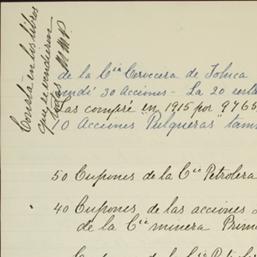 Consta en los libros
que se vendieron
todas M.M.P.
de la Cía Cervecera de Toluca
vendí 30 Acciones - La 20 resta
las compré en 1915 por 9765
0 Acciones Pulqueras" tam
50 Cupones de la Cía Petrolera
40 Cupones de las acciones d
de la Cía minera Prime